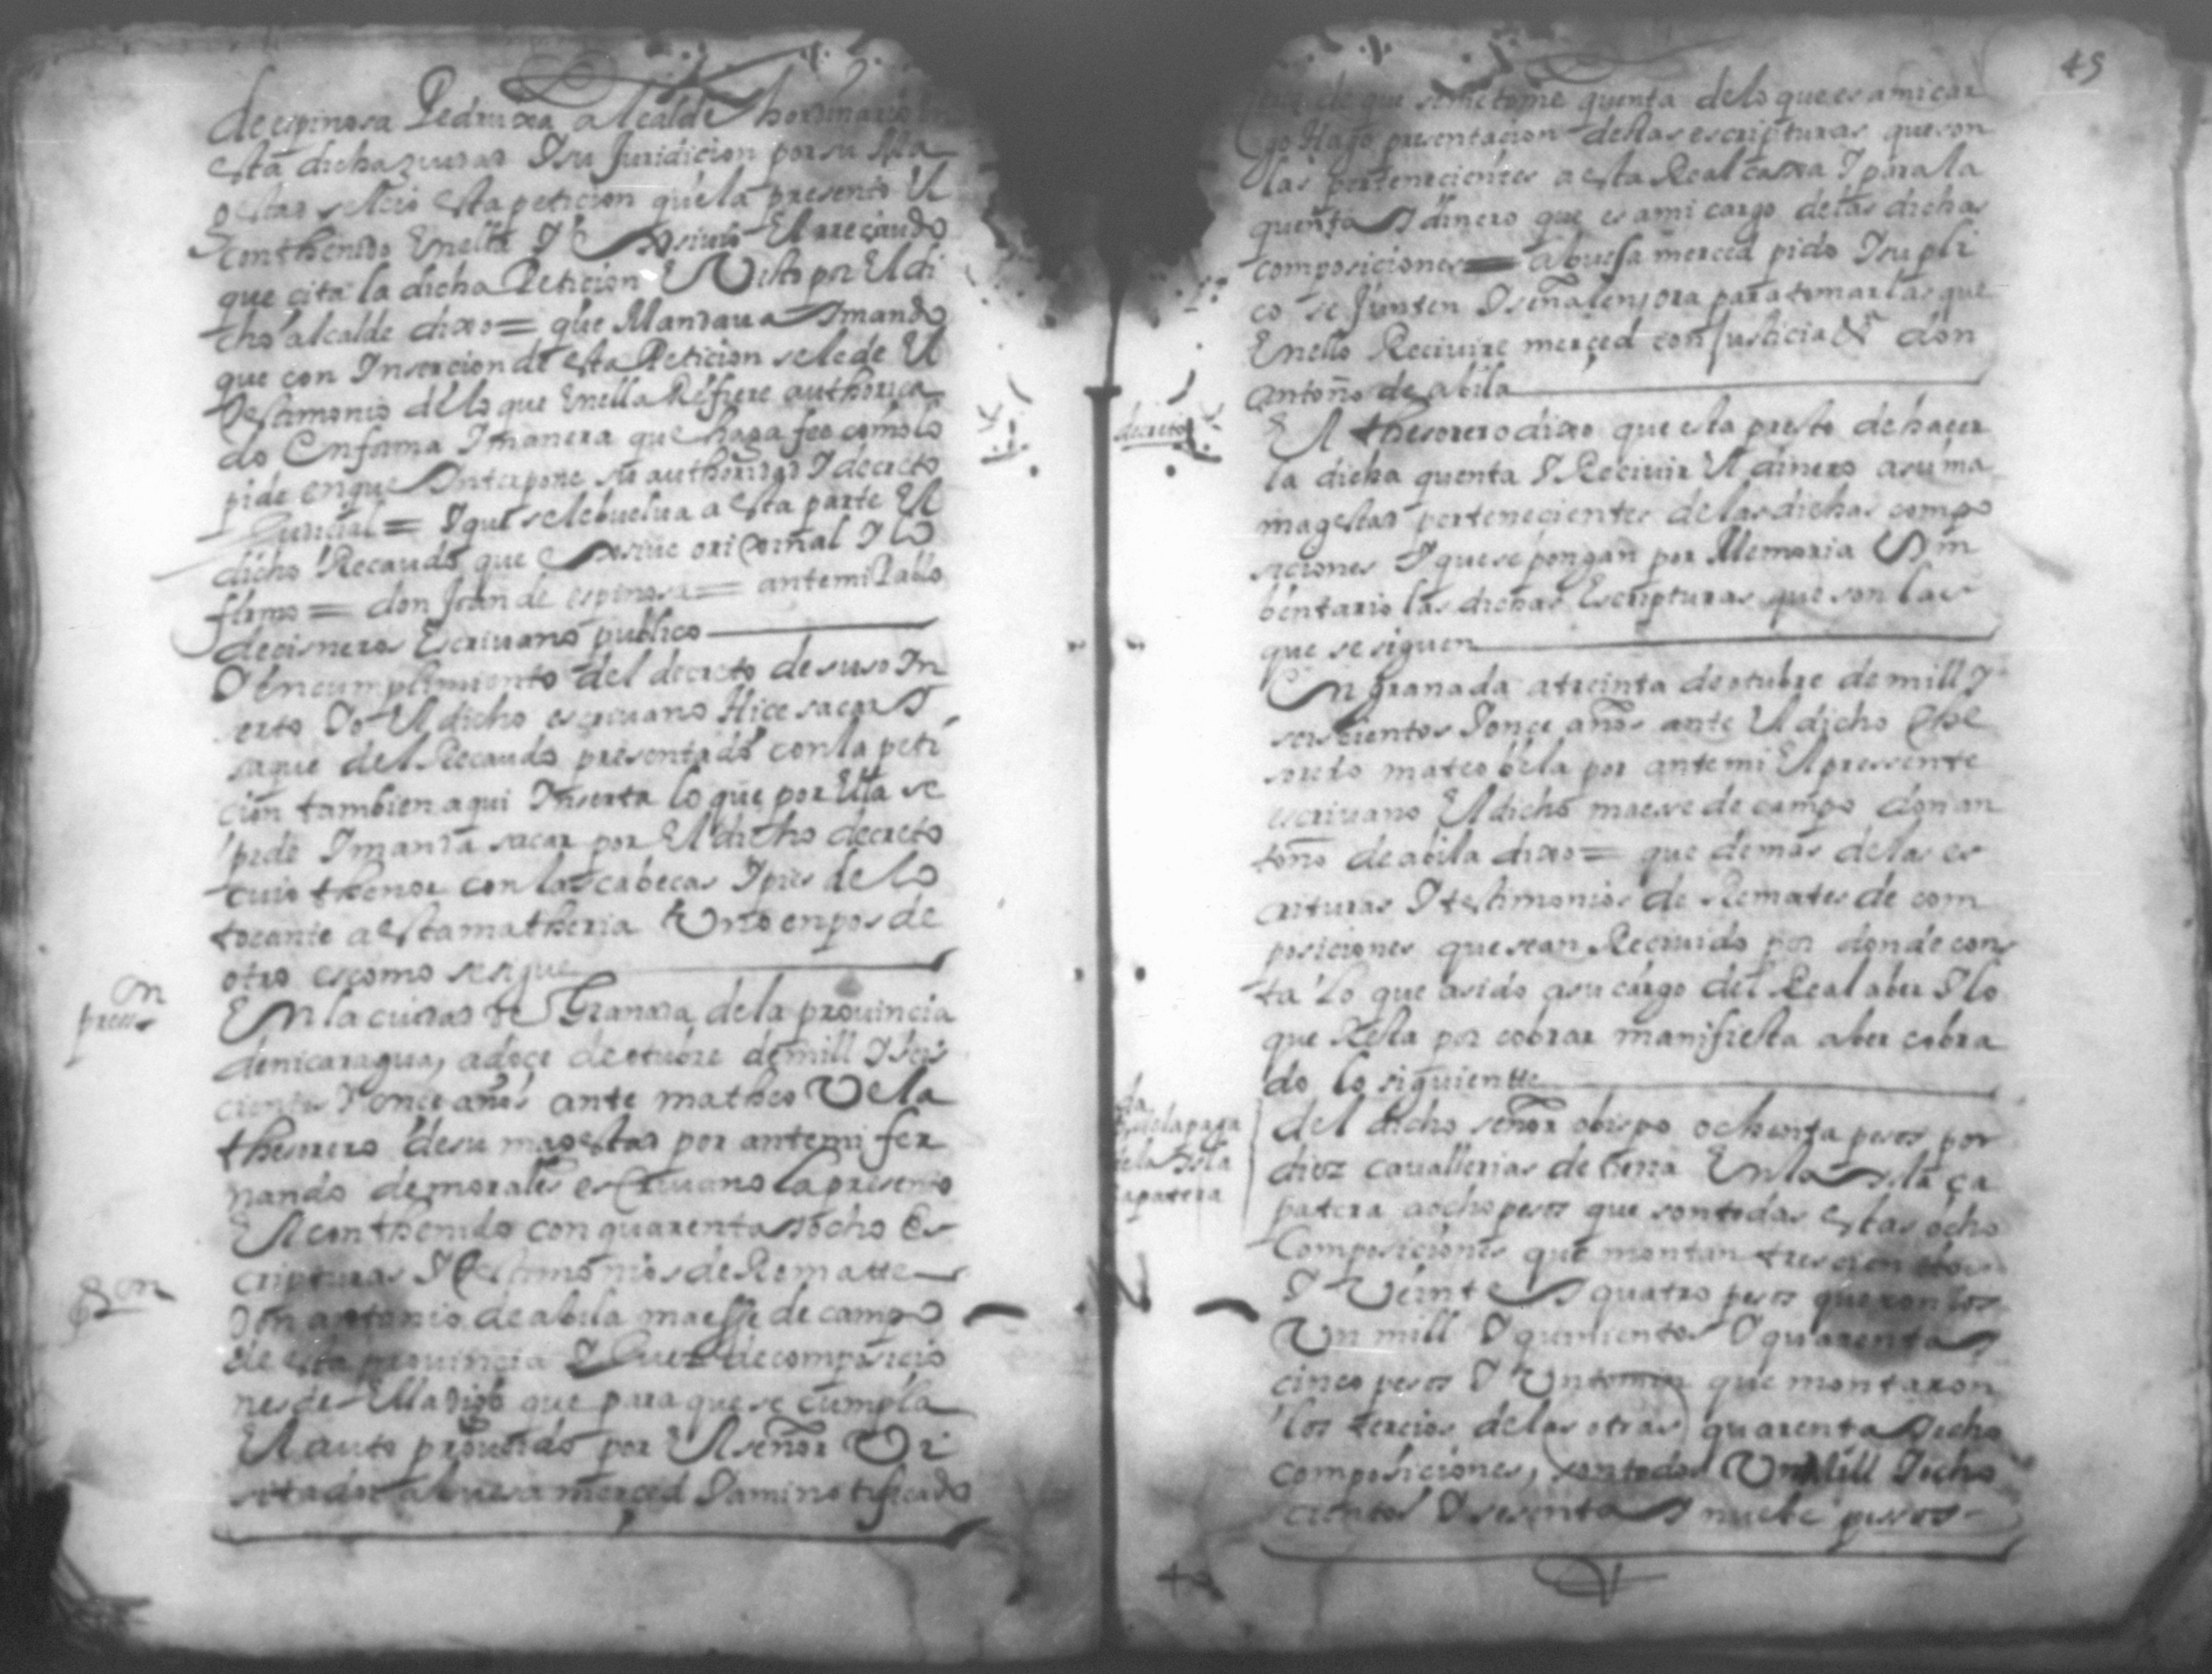 de espinosa Pedruxa alcalde hordinario en
esta dicha ziudad I su Juridicion por su Ma
gestad se leio esta peticion que la presento El
conthenido En ella I Exsiuio El recaudo
que cita la dicha Peticion E Visto por El di
cho alcalde dixo = que Mandaua I mando
que con Insercion de esta Peticion se le de El
Testimonio de lo que En ella Refiere authoriça
do En forma I manera que haga fee como lo
pide en que Interpone su authoridad I decreto
Judicial = I que se le buelua a esta parte El
dicho Recaudo que Exsiue oriXinal I lo
firmo = don Joan de espinosa = ante mi Pablo
de cisneros Escriuano publico
I En cumplimiento del decreto de suso In
serto Io El dicho escriuano Hice sacar I
saque del Recaudo presentado con la peti
cion tambien aqui Inserta lo que por Ella se
pide I manda sacar por El dicho decreto
cuio thenor con las cabecas I pies de lo
tocante a esta matheria Uno en pos de
otro es como se sigue
preson
En la ciudad de Granada de la prouincia
de nicaragua, a doçe de otubre de mill I seis
cientos I onçe años ante matheo Vela
thesorero de su magestad por ante mi fer
nando de morales escriuano la presento
El conthenido con quarenta I ocho Es
cripturas I Testimonios de Rematte
Don antonio de abila maesse de campo
de esta prouincia I Juez de composicio
nes de Ella digo que para que se cumpla
El auto proueido por El señor Vi
sitador a buesa merced I a mi notificado
49
que se me tome quenta de lo que es a mi car
go Hago presentacion destas escripturas que son
las pertenecientes a esta Real caxa I para la
quenta I dinero que es a mi cargo de las dichas
composiciones = a buesa merced pido I supli
co se Junten I señalen ora para tomarlas que
En ello Reciuire merçed con Justicia &ª don
antoño de abila
decreto
El thesorero dixo que esta presto de haçer
la dicha quenta I Reciuir El dinero a su ma
magestad pertenecientes de las dichas compo
siciones I que se pongan por Memoria E In
bentario las dichas Escripturas que son las
que se siguen
En granada a treinta de otubre de mill I
seiscientos I once años ante El dicho the
sorero mateo bela por ante mi El pressente
escriuano El dicho maese de campo don an
toño de abila dixo = que demas de las es
crituras I testimonios de Remates de com
posiciones que sean Reciuido por donde cons
ta lo que a sido a su cargo del Real aber I lo
que Resta por cobrar manifiesta aber cobra
do lo siguientte
de la paga
de la Isla
çapatera
del dicho señor obispo ochenta pesos por
diez cauallerias de tierra En la Isla ça
patera a ocho pesos que son todas estas ocho
Composiciones que montan trescientos
I Veinte I quatro pesos que con los
Un mill I quinientos I quarenta I
cinco pesos I Un tomin que montaron
los tercios de las otras quarenta I ocho
composiciones, son todos Un Mill I ocho
cientos I sesenta I nuebe pessos